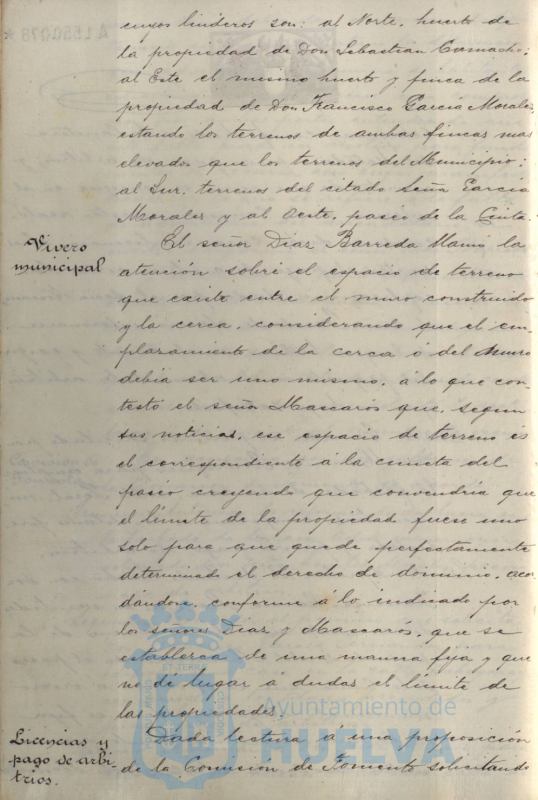 cuyos linderos son: al Norte, huerto de
la propiedad de Don Sebastian Camacho;
al Este el mismo huerto y finca de la
propiedad de Don Francisco García Morales,
estando los terrenos de ambas fincas mas
elevados que los terrenos del Municipio;
al Sur, terrenos del citado Señor García
Morales y al Oeste, paseo de la Cinta.
Vivero
municipal
El señor Diaz Barreda llamó la
atención sobre el espacio de terreno
que existe entre el muro construido
y la cerca, considerando que el em-
plazamiento de la cerca ó del muro
debia ser uno mismo, á lo que con-
testó el señor Mascarós que, segun
sus noticias, ese espacio de terreno es
el correspondiente á la cuneta del
paseo creyendo que convendría que
el límite de la propiedad fuese uno
solo para que quede perfectamente
determinado el derecho de dominio, acor-
dándose, conforme á lo indicado por
los señores Diaz y Mascarós, que se
establezca de una manera fija y que
no dé lugar á dudas el límite de
las propiedades.
Licencias y
pago de arbi-
trios.
Dada lectura á una proposición
de la Comisión de Fomento solicitando
Ayuntamiento de
HUELVA
A1550078